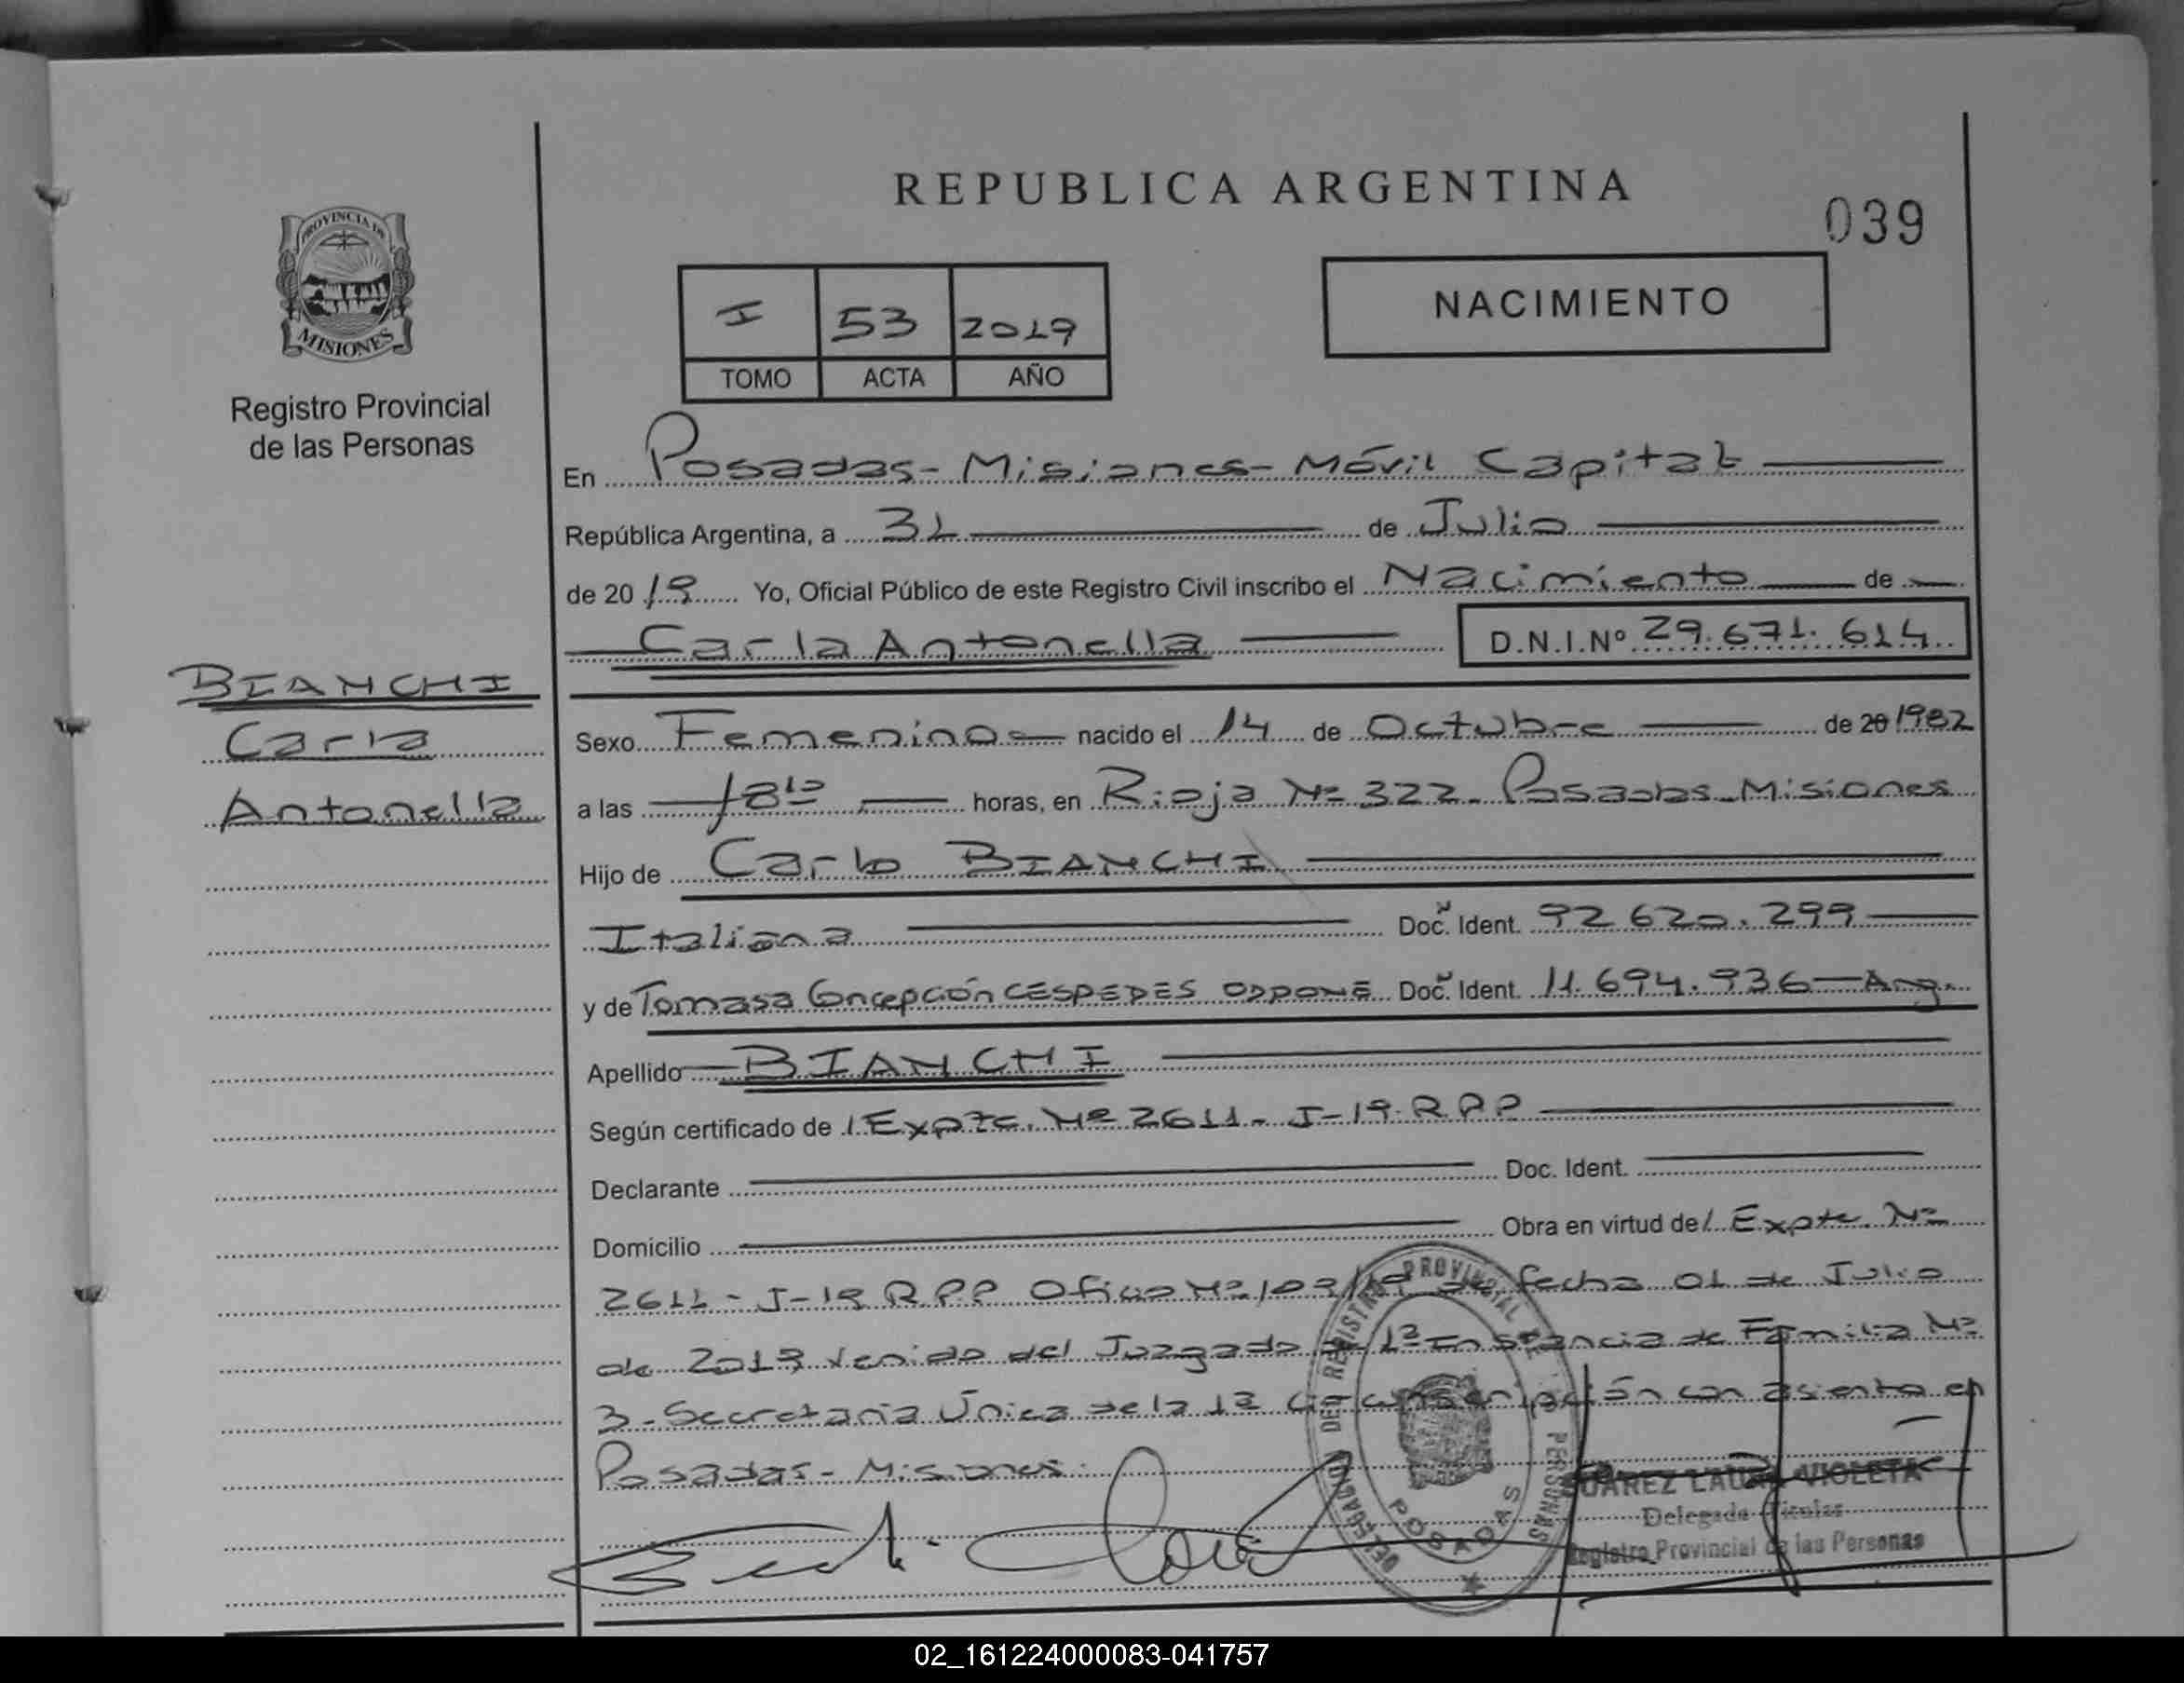 REPUBLICA ARGENTINA
039
PROVINCIA DE
MISIONES
Registro Provincial
de las Personas
I 53 2019
TOMO ACTA AÑO
NACIMIENTO
En Posadas - Misiones - Móvil Capital
República Argentina, a 31 de Julio
de 20 19 Yo, Oficial Público de este Registro Civil inscribo el Nacimiento de
Carla Antonella D.N.I.Nº 29.671.614
BIANCHI
Carla
Antonella
Sexo Femenino nacido el 14 de Octubre de 20 1982
a las 18 10 horas, en Rioja Nº 322 - Posadas - Misiones
Hijo de Carlo BIANCHI
Italiana Doc. Ident. 92.620.299
y de Tomasa Concepción CESPEDES ODDONE Doc. Ident. 11.694.936 - Arg.
Apellido BIANCHI
Según certificado de / Expte. Nº 2611 - J-19 RPP
Declarante Doc. Ident.
Domicilio Obra en virtud de / Expte. Nº
2611 - J-19 RPP Oficio Nº 109/19 de fecha 01 de Julio
de 2019 venido del Juzgado de 1ª Instancia de Familia Nº
3 - Secretaria Única de la 1ª Circunscripción con asiento en
Posadas - Misiones.
DELEGADO DEL REGISTRO PROVINCIAL DE PERSONAS
POSADAS
SUAREZ LAURA VIOLETA
Delegada Titular
Registro Provincial de las Personas
02_161224000083-041757